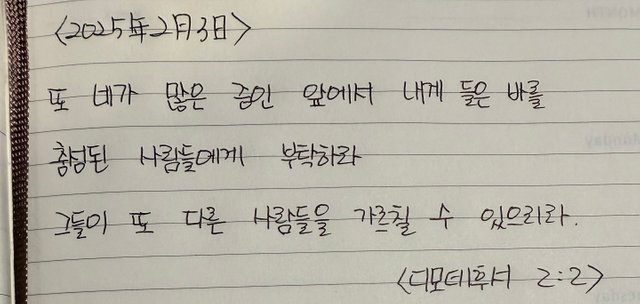 <2025年2月3日>
또 네가 많은 증인 앞에서 내게 들은 바를
충성된 사람들에게 부탁하라
그들이 또 다른 사람들을 가르칠 수 있으리라.
<디모데후서 2:2>